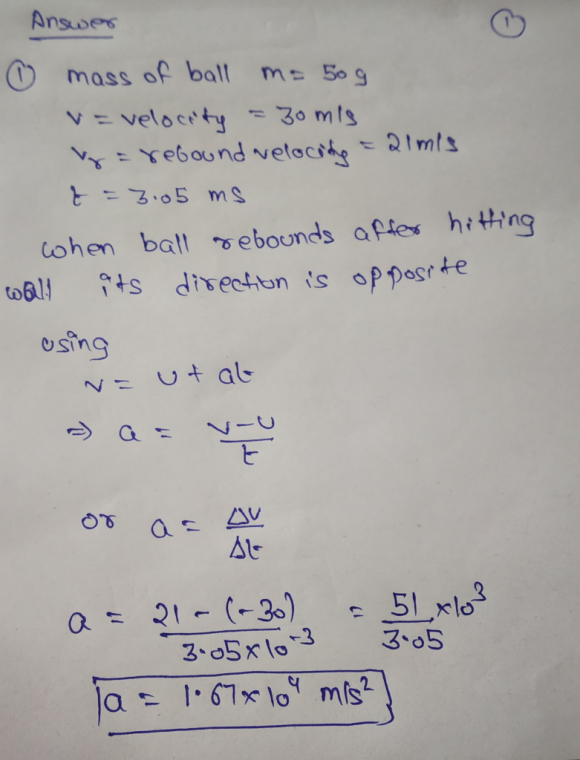 Answer
①
① mass of ball m = 50 g
v = velocity = 30 m/s
vr = rebound velocity = 21 m/s
t = 3.05 ms
when ball rebounds after hitting
wall its direction is opposite
using
v = u + at
⇒ a = v-u / t
or a = Δv / Δt
a = 21 - (-30) / 3.05 × 10^-3 = 51 / 3.05 × 10^3
a = 1.67 × 10^4 m/s^2